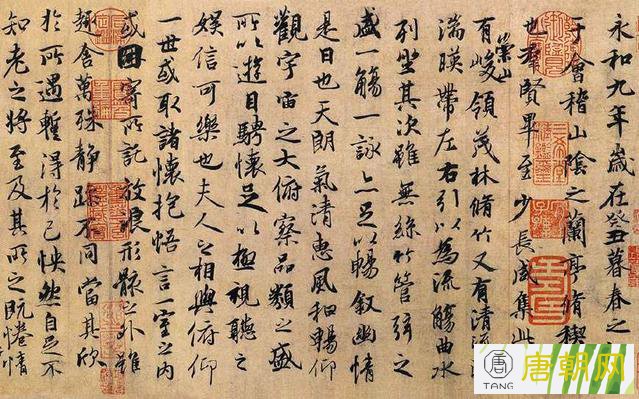 永和九年歲在癸丑暮春之
于會稽山陰之蘭亭脩稧
也群賢畢至少長咸集此
崇山
有峻領茂林脩竹又有清流
湍暎帶左右引以為流觴曲水
列坐其次雖無絲竹管弦之
盛一觴一詠亦足以暢敘幽情
是日也天朗氣清惠風和暢仰
觀宇宙之大俯察品類之盛
所以遊目騁懷足以極視聽之
娛信可樂也夫人之相與俯仰
一世或取諸懷抱悟言一室之內
或因寄所託放浪形骸之外雖
趣舍萬殊靜躁不同當其欣
於所遇暫得於己怏然自足不
知老之將至及其所之既惓情
唐
TANG
唐朝网